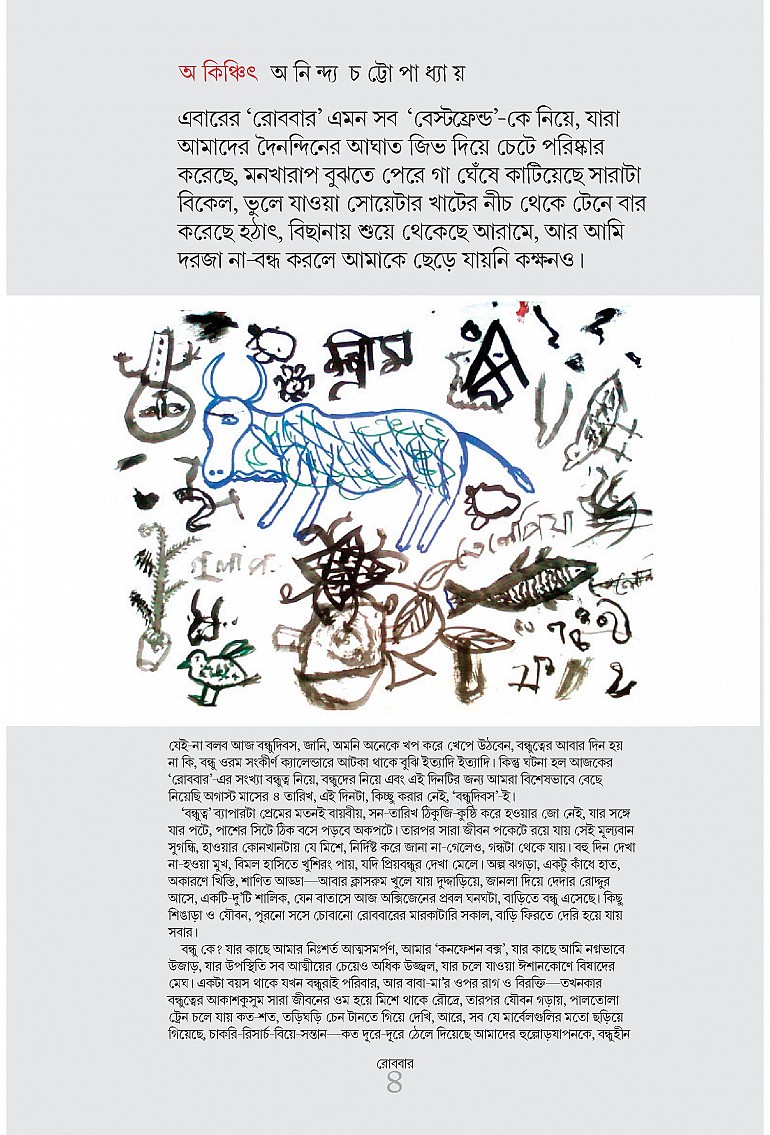 অ কিঞ্চিৎ অ নি ন্দ্য চ ট্টো পা ধ্যা য়
এবারের ‘রোববার’ এমন সব ‘বেস্টফ্রেন্ড’-কে নিয়ে, যারা
আমাদের দৈনন্দিনের আঘাত জিভ দিয়ে চেটে পরিষ্কার
করেছে, মনখারাপ বুঝতে পেরে গা ঘেঁষে কাটিয়েছে সারাটা
বিকেল, ভুলে যাওয়া সোয়েটার খাটের নীচ থেকে টেনে বার
করেছে হঠাৎ, বিছানায় শুয়ে থেকেছে আরামে, আর আমি
দরজা না-বন্ধ করলে আমাকে ছেড়ে যায়নি কক্ষনও।
তেলেপিয়া
গুলাপ
যেই-না বলব আজ বন্ধুদিবস, জানি, অমনি অনেকে খপ করে খেপে উঠবেন, বন্ধুত্বের আবার দিন হয়
না কি, বন্ধু ওরম সংকীর্ণ ক্যালেন্ডারে আটকা থাকে বুঝি ইত্যাদি ইত্যাদি। কিন্তু ঘটনা হল আজকের
‘রোববার’-এর সংখ্যা বন্ধুত্ব নিয়ে, বন্ধুদের নিয়ে এবং এই দিনটির জন্য আমরা বিশেষভাবে বেছে
নিয়েছি অগাস্ট মাসের ৪ তারিখ, এই দিনটা, কিচ্ছু করার নেই, ‘বন্ধুদিবস’-ই।
‘বন্ধুত্ব’ ব্যাপারটা প্রেমের মতনই বায়বীয়, সন-তারিখ ঠিকুজি-কুষ্ঠি করে হওয়ার জো নেই, যার সঙ্গে
যার পটে, পাশের সিটে ঠিক বসে পড়বে অকপটে। তারপর সারা জীবন পকেটে রয়ে যায় সেই মূল্যবান
সুগন্ধি, হাওয়ার কোনখানটায় যে মিশে, নির্দিষ্ট করে জানা না-গেলেও, গন্ধটা থেকে যায়। বহু দিন দেখা
না-হওয়া মুখ, বিমল হাসিতে খুশিরং পায়, যদি প্রিয়বন্ধুর দেখা মেলে। অল্প ঝগড়া, একটু কাঁধে হাত,
অকারণে খিস্তি, শাণিত আড্ডা—আবার ক্লাসরুম খুলে যায় দুদ্দাড়িয়ে, জানলা দিয়ে দেদার রোদ্দুর
আসে, একটি-দু’টি শালিক, যেন বাতাসে আজ অক্সিজেনের প্রবল ঘনঘটা, বাড়িতে বন্ধু এসেছে। কিছু
শিঙাড়া ও যৌবন, পুরনো সসে চোবানো রোববারের মারকাটারি সকাল, বাড়ি ফিরতে দেরি হয়ে যায়
সবার।
বন্ধু কে? যার কাছে আমার নিঃশর্ত আত্মসমর্পণ, আমার ‘কনফেশন বক্স’, যার কাছে আমি নগ্নভাবে
উজাড়, যার উপস্থিতি সব আত্মীয়ের চেয়েও অধিক উজ্জ্বল, যার চলে যাওয়া ঈশানকোণে বিষাদের
মেঘ। একটা বয়স থাকে যখন বন্ধুরাই পরিবার, আর বাবা-মা’র ওপর রাগ ও বিরক্তি—তখনকার
বন্ধুত্বের আকাশকুসুম সারা জীবনের ওম হয়ে মিশে থাকে রৌদ্রে, তারপর যৌবন গড়ায়, পালতোলা
ট্রেন চলে যায় কত-শত, তড়িঘড়ি চেন টানতে গিয়ে দেখি, আরে, সব যে মার্বেলগুলির মতো ছড়িয়ে
গিয়েছে, চাকরি-রিসার্চ-বিয়ে-সন্তান—কত দূরে-দূরে ঠেলে দিয়েছে আমাদের হুল্লোড়যাপনকে, বন্ধুহীন
রোববার
৪